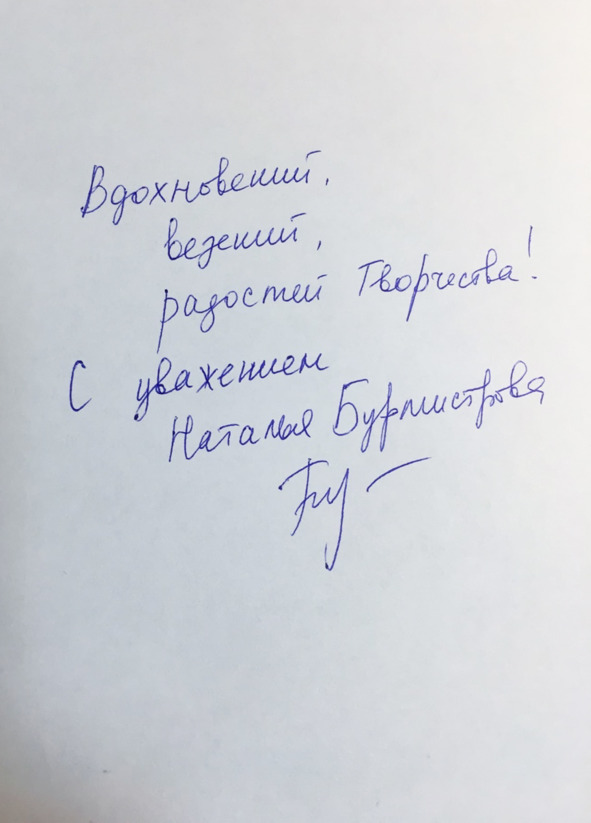 Вдохновений,
везений,
радостей Творчества!
С уважением
Наталья Бурмистрова